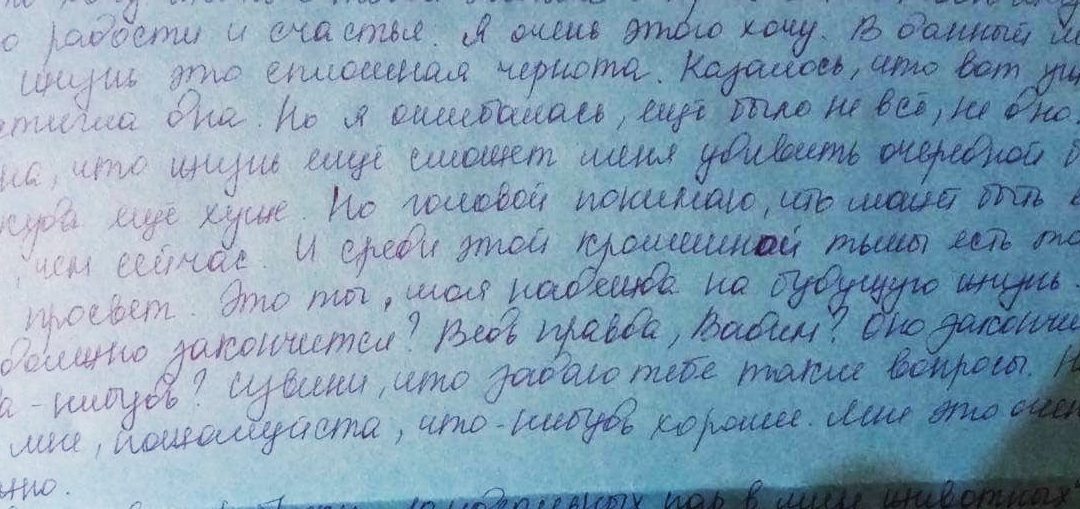 о радости и счастье. Я очень этого хочу. В данный
жизнь это сплошная чернота. Казалось, что вот
она. Но я ошибалась, ещё было не всё, не
на, что жизнь ещё сможет меня убивать очередной
ещё хуже. Но головой понимаю, что может быть
, чем сейчас. И среди этой крошечной тьмы есть
просвет. Это ты, моя надежда на будущую жизнь.
должно закончится? Ведь правда, Вадим? Оно
а-нибудь? Извини, что задаю тебе такие вопросы.
мне, пожалуйста, что-нибудь хорошее. Мне это
жно.
пар в мире животных